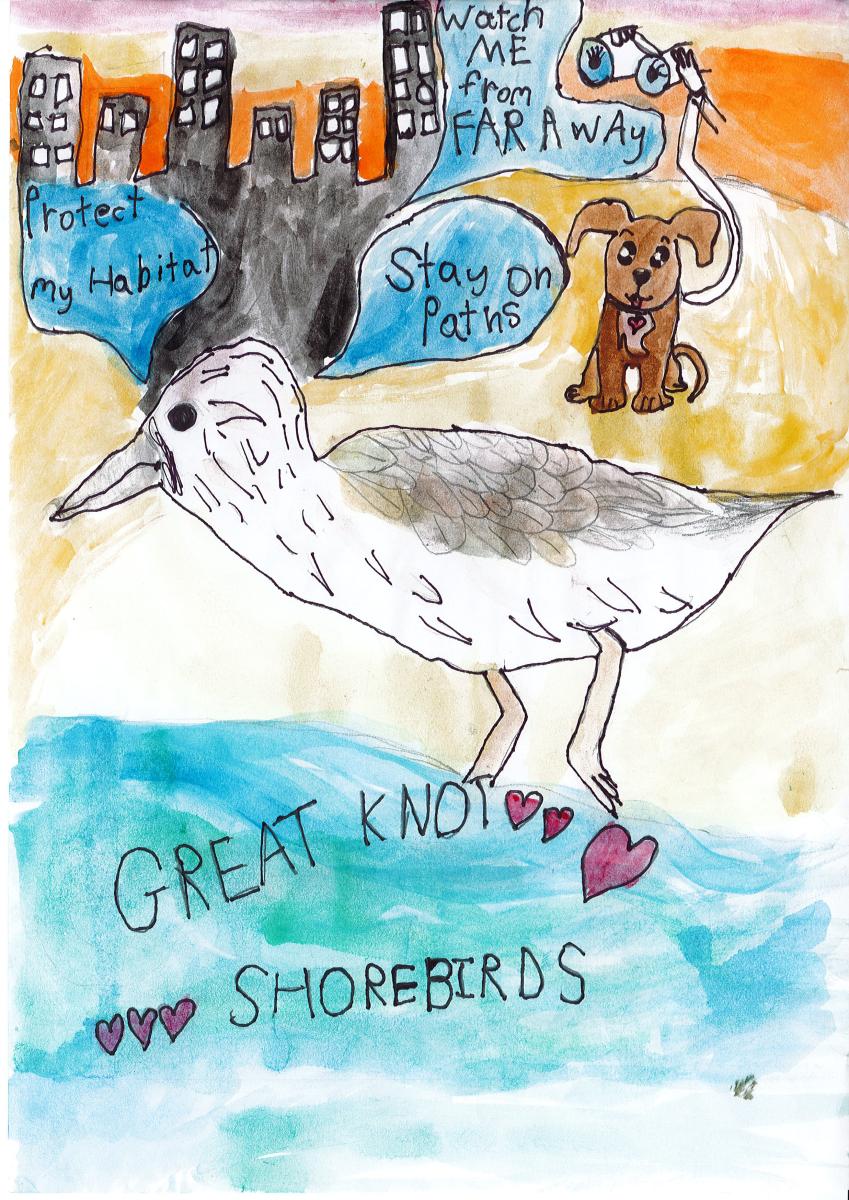 Watch
ME
from
FAR AWAy
Protect
my Habitat
Stay on
Paths
GREAT KNOT
SHOREBIRDS